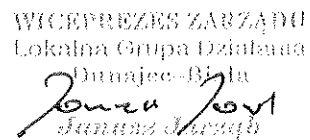 WICEPREZES ZARZĄDU
Lokalna Grupa Działania
Dunajec-Biała
Janusz